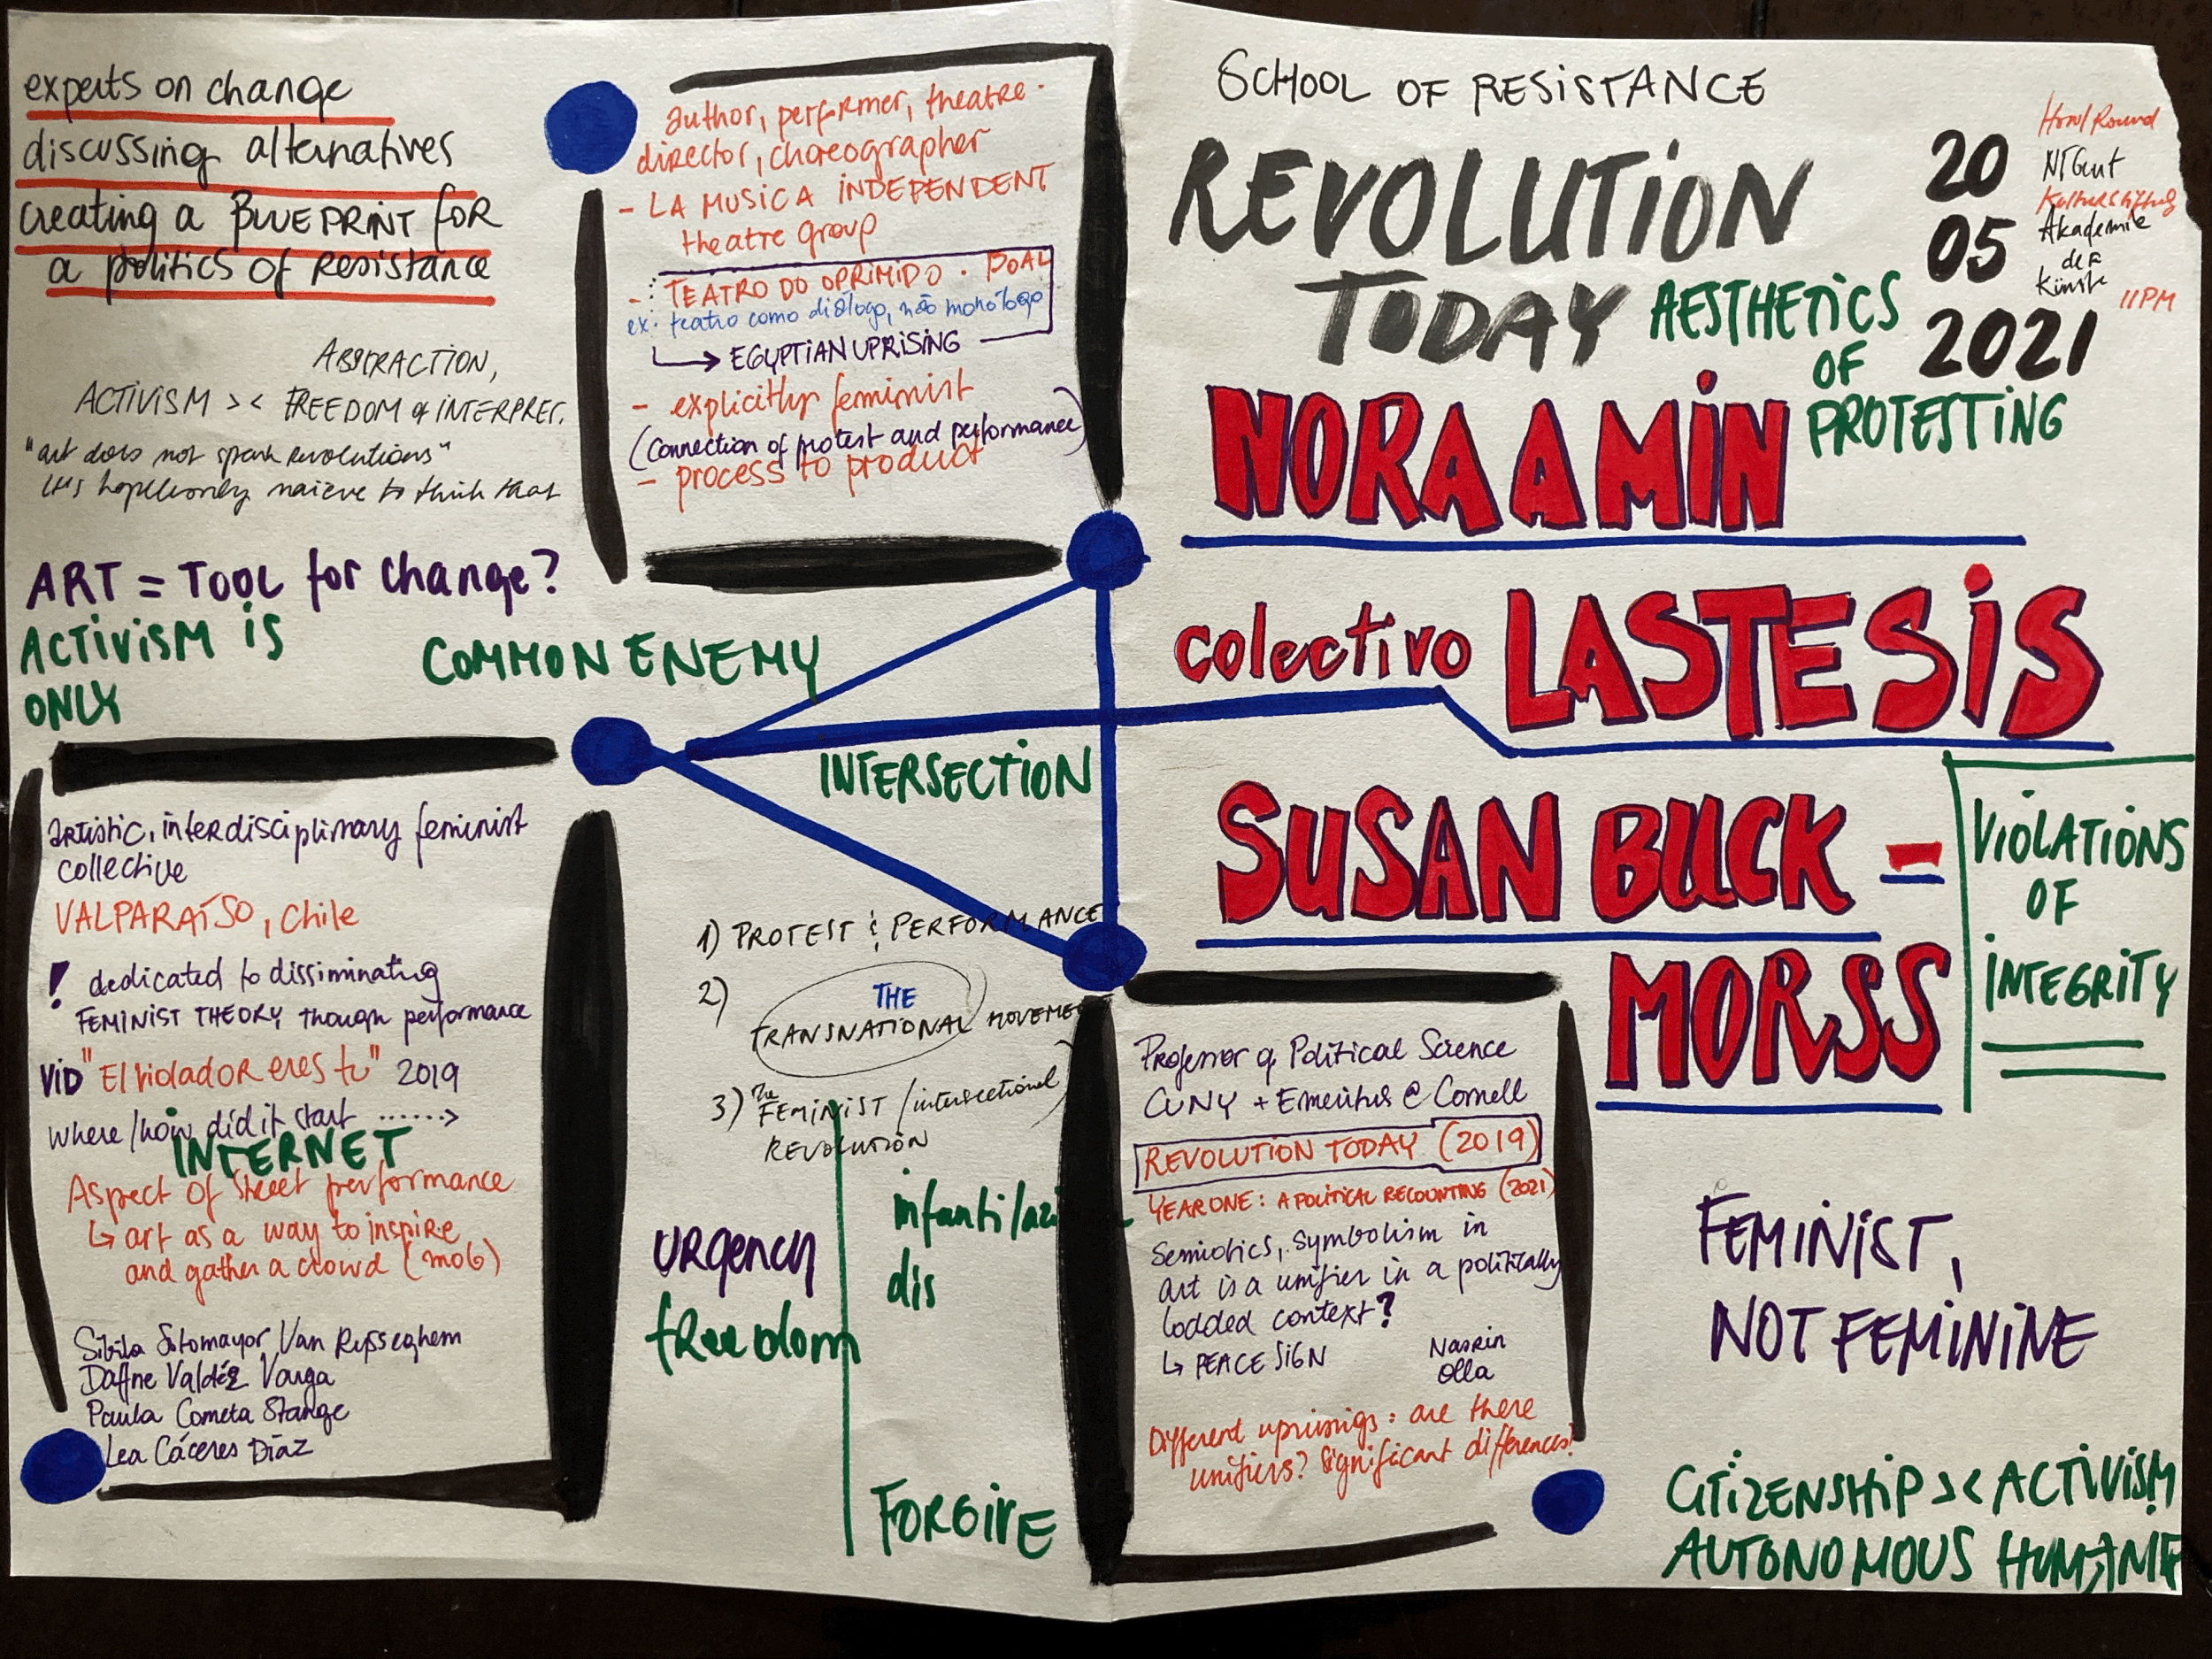 experts on change
discussing alternatives
creating a BLUEPRINT for
a politics of resistance
ABSTRACTION,
ACTIVISM >< FREEDOM of INTERPRET.
"art does not spark revolutions"
it's hopelessly naieve to think that
ART = TOOL for change?
ACTIVISM is
ONLY
COMMON ENEMY
author, performer, theatre-
director, choreographer
- LA MUSICA INDEPENDENT
theatre group
- TEATRO DO OPRIMIDO. BOAL
ex. teatro como diálogo, não monólogo
EGYPTIAN UPRISING
- explicitly feminist
(connection of protest and performance)
- process to product
SCHOOL OF RESISTANCE
REVOLUTION
TODAY
AESTHETICS
OF
PROTESTING
20
05
2021
HowlRound
NTGent
Kulturstiftung
Akademie
der
Künste
11PM
NORA AMIN
colectivo LASTESIS
SUSAN BUCK -
MORSS
VIOLATIONS
OF
INTEGRITY
INTERSECTION
artistic, interdisciplinary feminist
collective
VALPARAÍSO, Chile
! dedicated to dissiminating
FEMINIST THEORY though performance
VID "El violador eres tu" 2019
where/how did it start ......>
INTERNET
Aspect of street performance
↳ art as a way to inspire
and gather a crowd (mob)
Sibila Sotomayor Van Rysseghem
Dafne Valdés Vargas
Paula Cometa Stange
Lea Cáceres Díaz
1) PROTEST & PERFORMANCE
2) THE
TRANSNATIONAL MOVEME
3) The
FEMINIST / intersectional
REVOLUTION
URgency
freedom
infantilazi
dis
FORGIVE
Professor of Political Science
CUNY + Emeritus @ Cornell
REVOLUTION TODAY (2019)
YEAR ONE: A POLITICAL RECOUNTING (2021)
Semiotics, symbolism in
art is a unifier in a politically
lodded context?
↳ PEACE SIGN
Nasrin
Olla
Different uprisings: are there
unifiers? Significant differences?
FEMINIST,
NOT FEMININE
CITIZENSHIP >< ACTIVISM
AUTONOMOUS